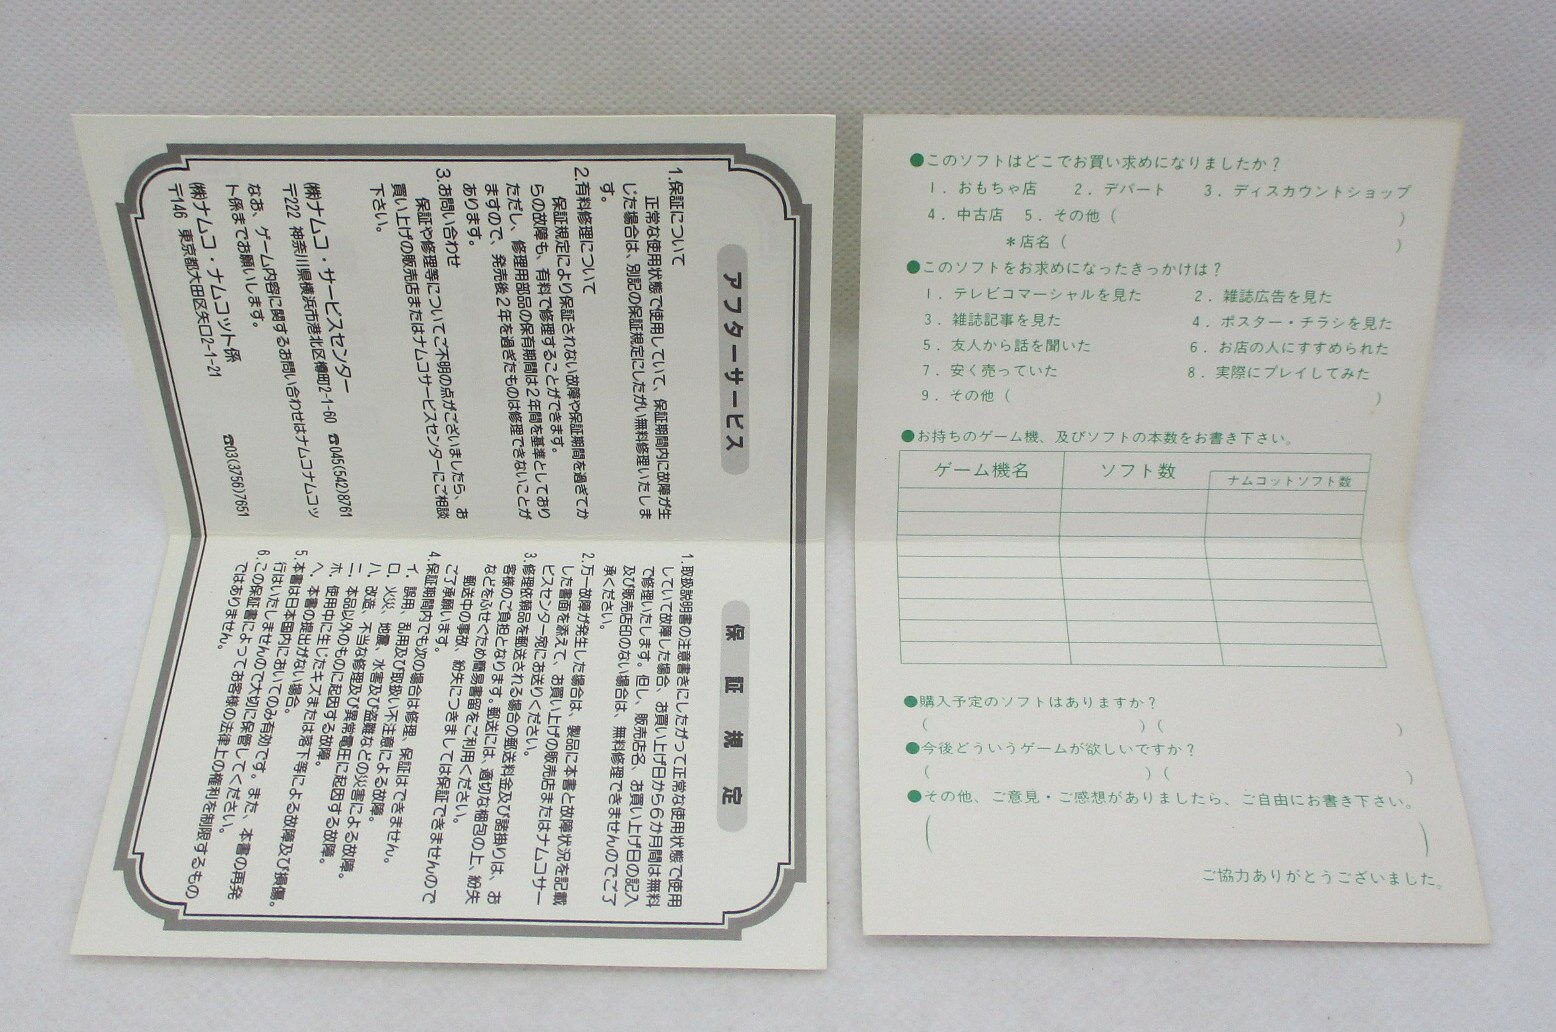 アフターサービス
1.保証について
正常な使用状態で使用していて、保証期間内に故障が生
じた場合は、別記の保証規定にしたがい無料修理いたしま
す。
2.有料修理について
保証規定により保証されない故障や保証期間を過ぎてか
らの故障も、有料で修理することができます。
ただし、修理用部品の保有期間は2年間を基準としており
ますので、発売後2年を過ぎたものは修理できないことが
あります。
3.お問い合わせ
保証や修理等についてご不明の点がございましたら、お
買い上げの販売店またはナムコサービスセンターにご相談
下さい。
㈱ナムコ・サービスセンター
〒222 神奈川県横浜市港北区樽町2-1-60 ☎045(542)8761
なお、ゲーム内容に関するお問い合わせはナムコナムコッ
ト係までお願いします。
㈱ナムコ・ナムコット係
〒146 東京都大田区矢口2-1-21 ☎03(3756)7651
保証規定
1.取扱説明書の注意書きにしたがって正常な使用状態で使用
していて故障した場合、お買い上げ日から6か月間は無料
で修理いたします。但し、販売店名、お買い上げ日の記入
及び販売店印のない場合は、無料修理できませんのでご了
承ください。
2.万一故障が発生した場合は、製品に本書と故障状況を記載
した書面を添えて、お買い上げの販売店またはナムコサー
ビスセンター宛にお送りください。
3.修理依頼品を郵送される場合の郵送料金及び諸掛りは、お
客様のご負担となります。郵送には、適切な梱包の上、紛失
などをふせぐため簡易書留をご利用ください。
郵送中の事故、紛失につきましては保証できませんので
ご了承願います。
4.保証期間内でも次の場合は修理、保証はできません。
イ.誤用、乱用及び取扱い不注意による故障。
ロ.火災、地震、水害及び盗難などの災害による故障。
ハ.改造、不当な修理及び異常電圧に起因する故障。
ニ.本品以外のものに起因する故障。
ホ.使用中に生じたキズまたは落下等による故障及び損傷。
ヘ.本書の提出がない場合。
5.本書は日本国内においてのみ有効です。また、本書の再発
行はいたしませんので大切に保管してください。
6.この保証書によってお客様の法律上の権利を制限するもの
ではありません。
●このソフトはどこでお買い求めになりましたか？
1．おもちゃ店 2．デパート 3．ディスカウントショップ
4．中古店 5．その他（ ）
＊店名（ ）
●このソフトをお求めになったきっかけは？
1．テレビコマーシャルを見た 2．雑誌広告を見た
3．雑誌記事を見た 4．ポスター・チラシを見た
5．友人から話を聞いた 6．お店の人にすすめられた
7．安く売っていた 8．実際にプレイしてみた
9．その他（ ）
●お持ちのゲーム機、及びソフトの本数をお書き下さい。
ゲーム機名 ソフト数
ナムコットソフト数
●購入予定のソフトはありますか？
（ ）（ ）
●今後どういうゲームが欲しいですか？
（ ）（ ）
●その他、ご意見・ご感想がありましたら、ご自由にお書き下さい。
（ ）
ご協力ありがとうございました。